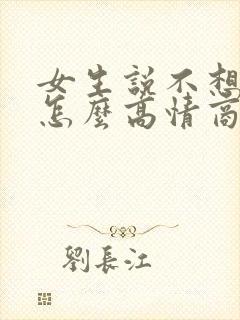 女生說不想
怎麼高情商
劉長江